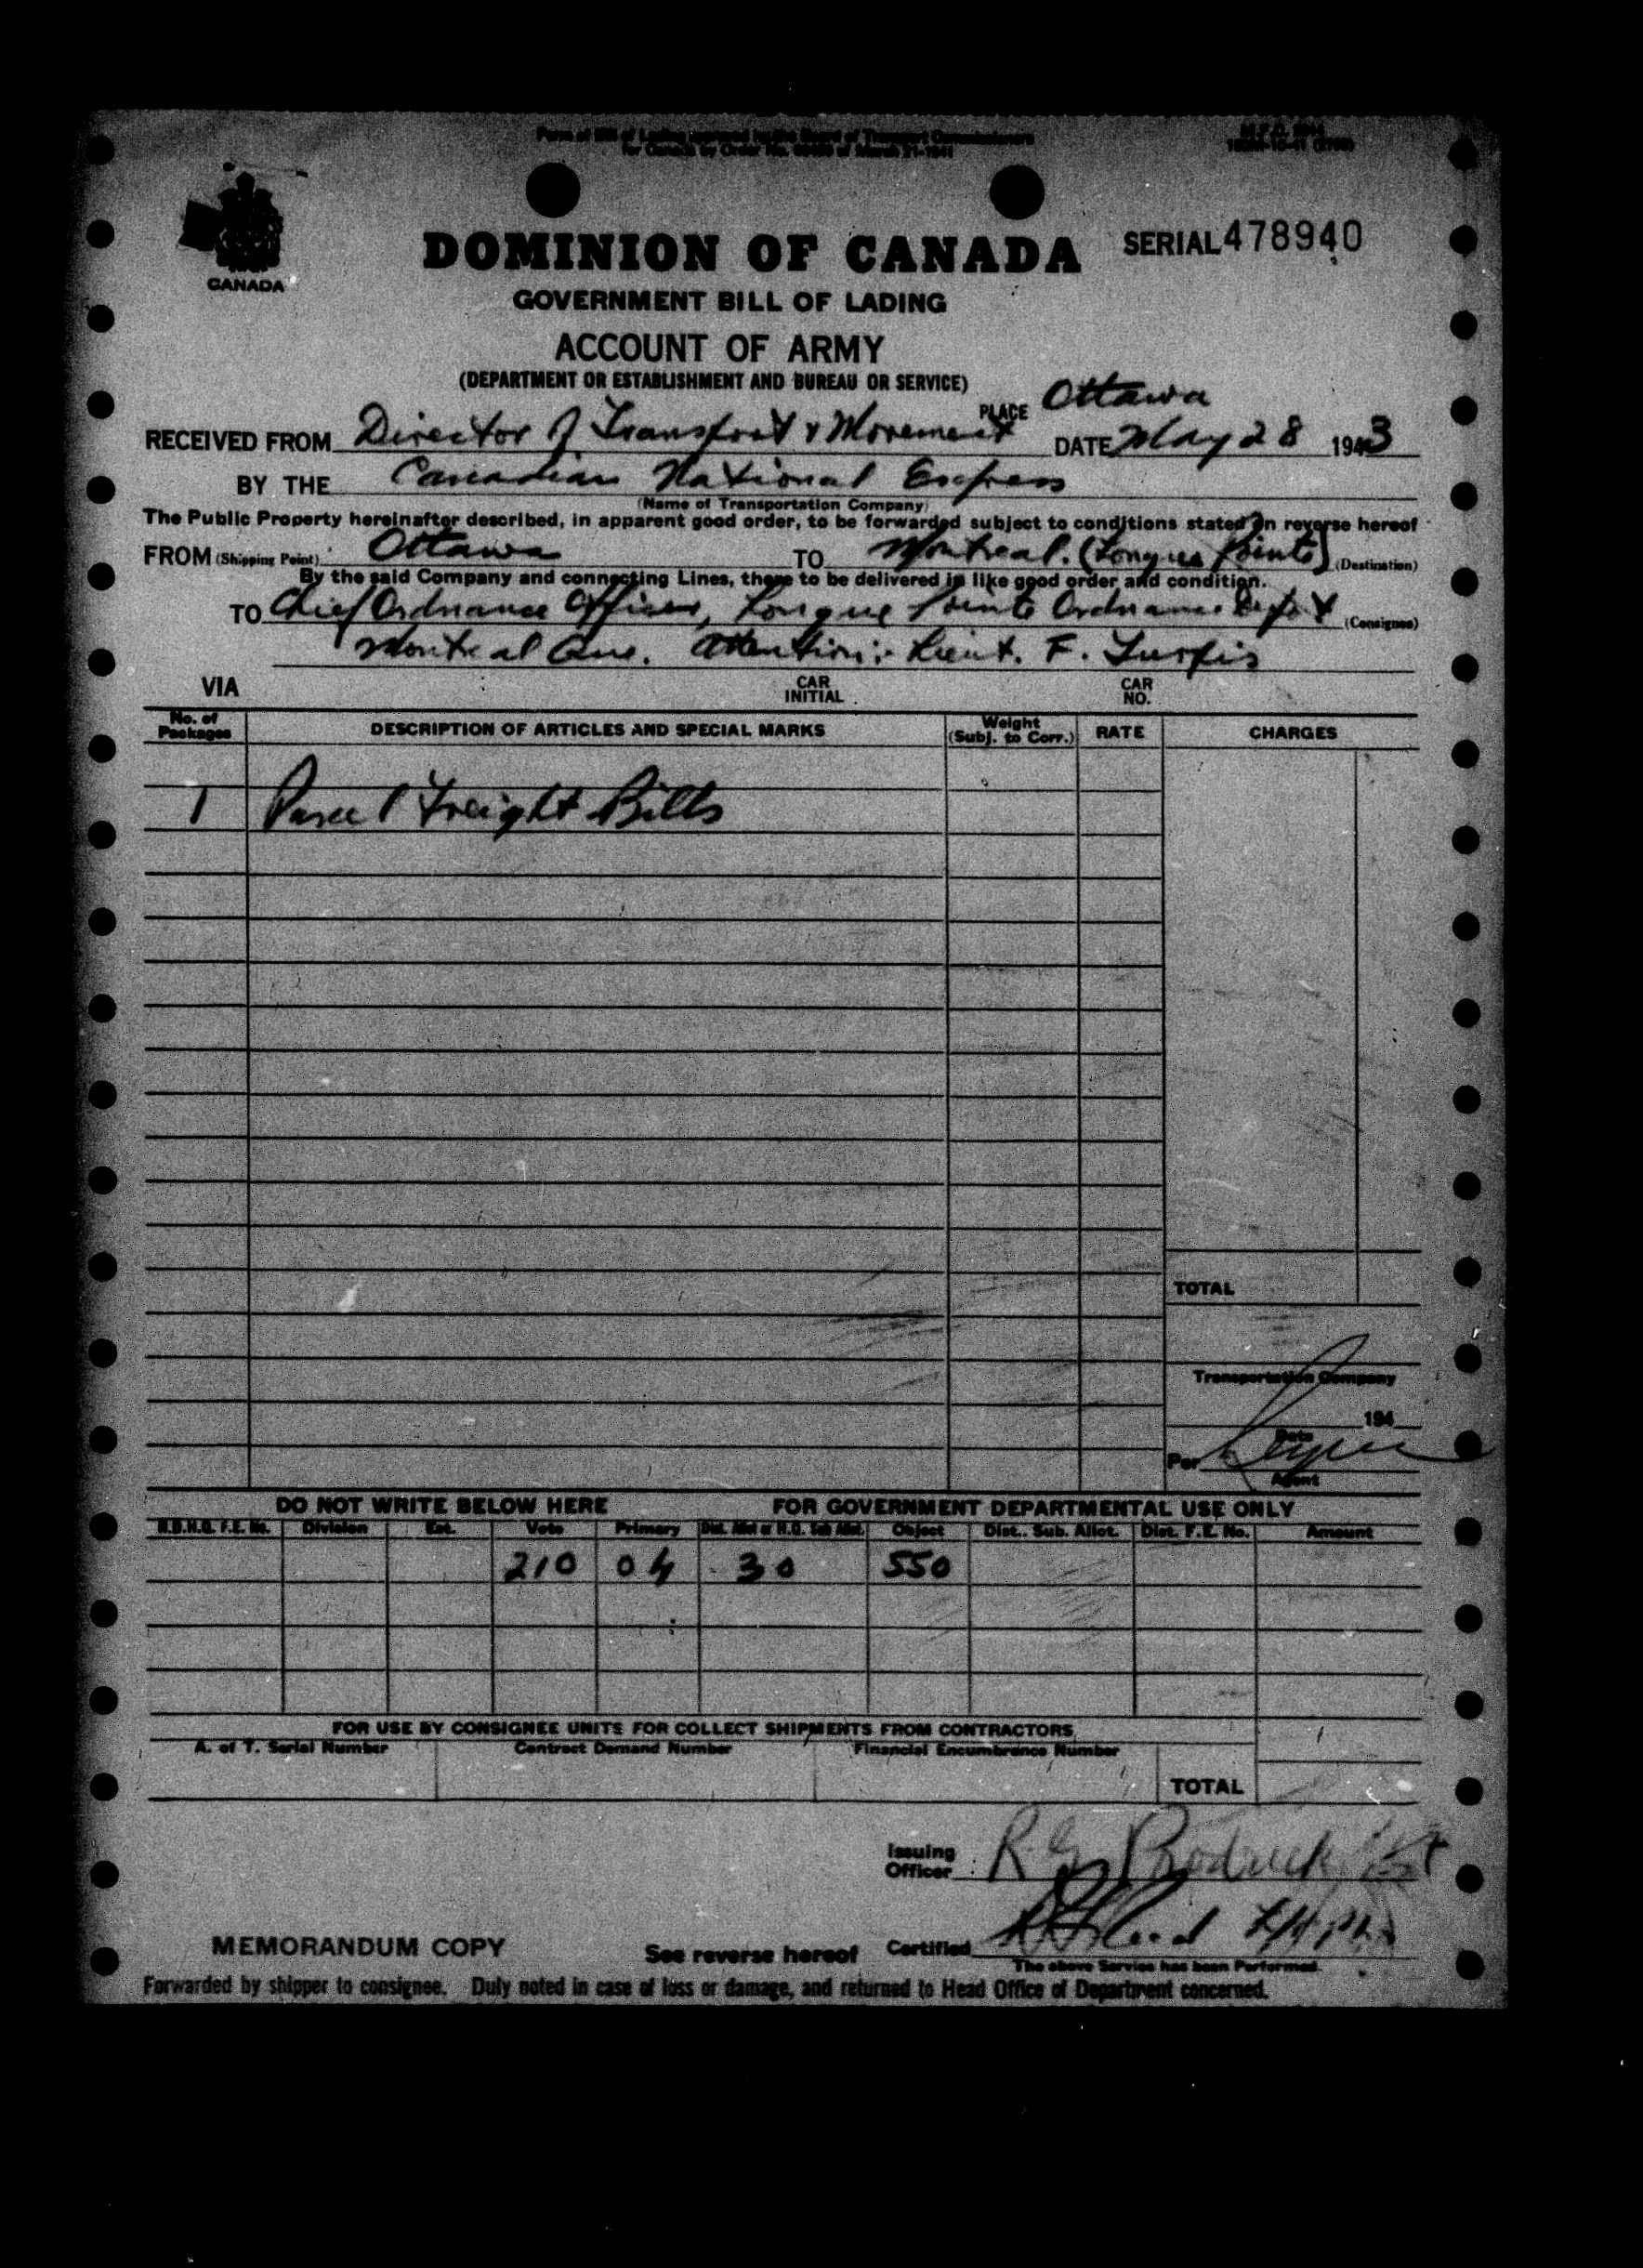 Form of Bill of Lading approved by the Board of Transport Commissioners
for Canada by Order No. of March 21-1941
CANADA
DOMINION OF CANADA
SERIAL 478940
GOVERNMENT BILL OF LADING
ACCOUNT OF ARMY
(DEPARTMENT OR ESTABLISHMENT AND BUREAU OR SERVICE)
PLACE Ottawa
RECEIVED FROM Director of Transport & Movement DATE May 28 1943
BY THE Canadian National Express
(Name of Transportation Company)
The Public Property hereinafter described, in apparent good order, to be forwarded subject to conditions stated on reverse hereof
FROM (Shipping Point) Ottawa TO Montreal. (Longue Pointe) (Destination)
By the said Company and connecting Lines, there to be delivered in like good order and condition.
TO Chief Ordnance Officer, Longue Pointe Ordnance Depot (Consignee)
Montreal Que. Attention:- Lieut. F. Turpis
VIA CAR INITIAL CAR NO.
No. of Packages DESCRIPTION OF ARTICLES AND SPECIAL MARKS Weight (Subj. to Corr.) RATE CHARGES
1 Parcel Freight Bills
TOTAL
Transportation Company
194
Date
Per
Agent
DO NOT WRITE BELOW HERE FOR GOVERNMENT DEPARTMENTAL USE ONLY
N.D.H.Q. F.E. No. Division Est. Vote Primary Dist. Allot or H.Q. Sub Allot. Object Dist. Sub. Allot. Dist. F.E. No. Amount
210 04 30 550
FOR USE BY CONSIGNEE UNITS FOR COLLECT SHIPMENTS FROM CONTRACTORS
A. of T. Serial Number Contract Demand Number Financial Encumbrance Number
TOTAL
Issuing Officer R.G. Brodrick
Certified
The above Service has been Performed.
MEMORANDUM COPY See reverse hereof
Forwarded by shipper to consignee. Duly noted in case of loss or damage, and returned to Head Office of Department concerned.